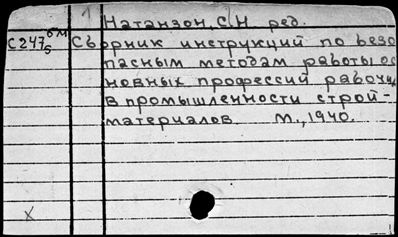 1 Натанзон, С.Н ред.
С247 5 6м Сборник инструкций по безо
пасным методам работы ос
новных профессий рабочих
в промышленности строй-
материалов. М., 1940.
X